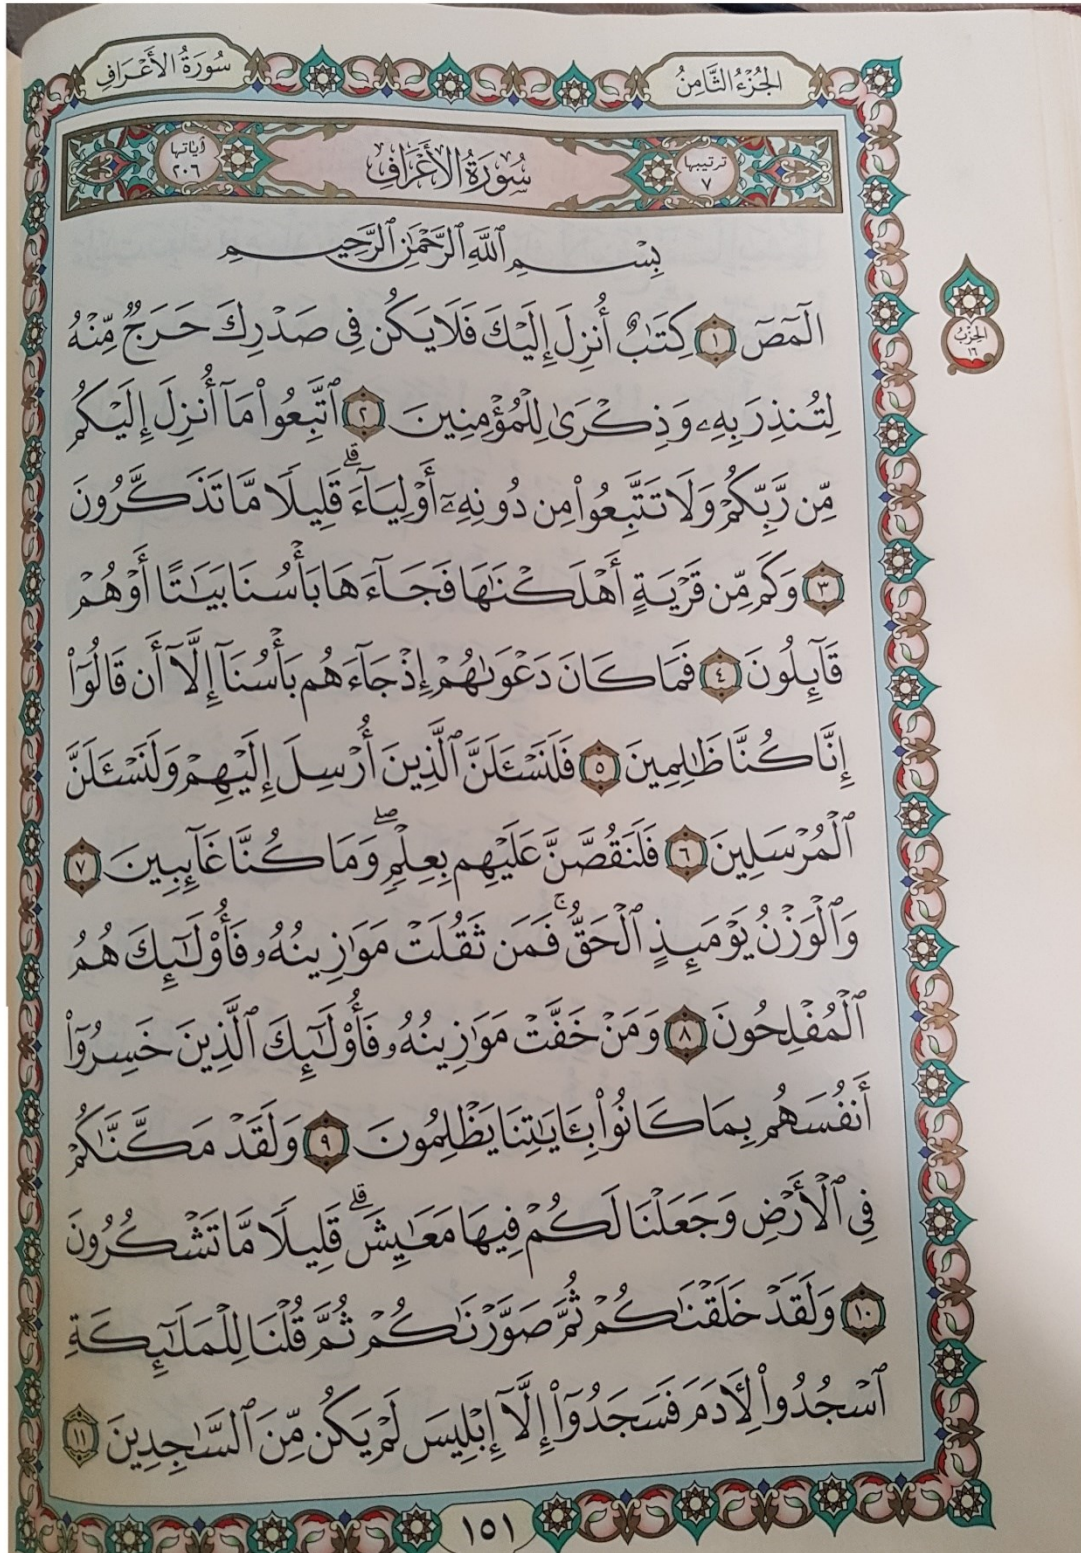 سُورَةُ الأَعْرَافِ
الجُزْءُ الثَّامِنُ
ترتيبها
٧
سُورَةُ الأَعْرَافِ
آياتها
٢٠٦
بِسْمِ ٱللَّهِ ٱلرَّحْمَٰنِ ٱلرَّحِيمِ
الٓمٓصٓ ١ كِتَٰبٌ أُنزِلَ إِلَيْكَ فَلَا يَكُن فِى صَدْرِكَ حَرَجٌ مِّنْهُ
لِتُنذِرَ بِهِۦ وَذِكْرَىٰ لِلْمُؤْمِنِينَ ٢ ٱتَّبِعُوا۟ مَآ أُنزِلَ إِلَيْكُم
مِّن رَّبِّكُمْ وَلَا تَتَّبِعُوا۟ مِن دُونِهِۦٓ أَوْلِيَآءَ ۗ قَلِيلًا مَّا تَذَكَّرُونَ
٣ وَكَم مِّن قَرْيَةٍ أَهْلَكْنَٰهَا فَجَآءَهَا بَأْسُنَا بَيَٰتًا أَوْ هُمْ
قَآئِلُونَ ٤ فَمَا كَانَ دَعْوَىٰهُمْ إِذْ جَآءَهُم بَأْسُنَآ إِلَّآ أَن قَالُوٓا۟
إِنَّا كُنَّا ظَٰلِمِينَ ٥ فَلَنَسْـَٔلَنَّ ٱلَّذِينَ أُرْسِلَ إِلَيْهِمْ وَلَنَسْـَٔلَنَّ
ٱلْمُرْسَلِينَ ٦ فَلَنَقُصَّنَّ عَلَيْهِم بِعِلْمٍ ۖ وَمَا كُنَّا غَآئِبِينَ ٧
وَٱلْوَزْنُ يَوْمَئِذٍ ٱلْحَقُّ ۚ فَمَن ثَقُلَتْ مَوَٰزِينُهُۥ فَأُو۟لَٰٓئِكَ هُمُ
ٱلْمُفْلِحُونَ ٨ وَمَنْ خَفَّتْ مَوَٰزِينُهُۥ فَأُو۟لَٰٓئِكَ ٱلَّذِينَ خَسِرُوٓا۟
أَنفُسَهُم بِمَا كَانُوا۟ بِـَٔايَٰتِنَا يَظْلِمُونَ ٩ وَلَقَدْ مَكَّنَّٰكُمْ
فِى ٱلْأَرْضِ وَجَعَلْنَا لَكُمْ فِيهَا مَعَٰيِشَ ۗ قَلِيلًا مَّا تَشْكُرُونَ
١٠ وَلَقَدْ خَلَقْنَٰكُمْ ثُمَّ صَوَّرْنَٰكُمْ ثُمَّ قُلْنَا لِلْمَلَٰٓئِكَةِ
ٱسْجُدُوا۟ لِـَٔادَمَ فَسَجَدُوٓا۟ إِلَّآ إِبْلِيسَ لَمْ يَكُن مِّنَ ٱلسَّٰجِدِينَ ١١
الحِزْبُ
١٦
١٥١